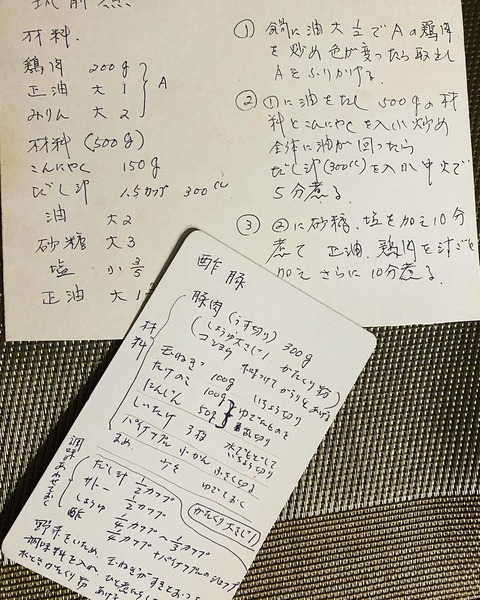 筑前煮
材料.
鶏肉 200g
正油 大1
みりん 大2
A
材料(500g)
こんにゃく 150g
だし汁 1.5カップ 300cc
油 大2
砂糖 大3
塩 小3/5
正油 大1
① 鍋に油大1/2でAの鶏肉
を炒め色が変ったら取出し
Aをふりかける.
② ①に油をたし500gの材
料とこんにゃくを入れ炒め
全体に油が回ったら
だし汁(300cc)を入れ中火で
5分煮る.
③ ②に砂糖、塩を加え10分
煮て 正油、鶏肉を汁ごと
加えさらに10分煮る.
酢豚
材料
豚肉(うす切り) 300g
(しょうゆ大さじ1 かたくり粉)
玉ねぎ 100g いちょう切り
たけのこ 100g ゆでたものを
にんじん 50g 乱切り
しいたけ 3枚 水でもどして
いちょう切り
パイナップル 小かん 小さく切る
ゆでておく
調味料あわせておく
だし汁 1/2カップ
サトー 1/2カップ
しょうゆ 1/4カップ〜1/3カップ
酢 1/4カップ+パイナップルのシロップ
かたくり大さじ1
野菜をいため
調味料を入れ